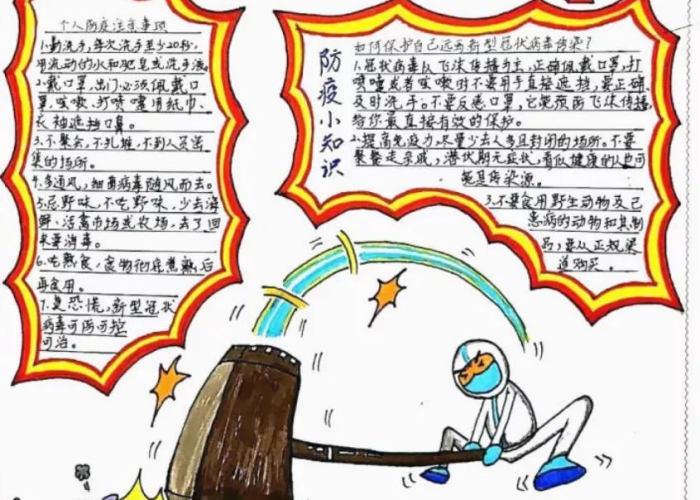 个人防疫注意事项
1.勤洗手,每次洗手至少20秒,
用流动的水和肥皂或洗手液。
2.戴口罩,出门必须佩戴口
罩,咳嗽、打喷嚏用纸巾、
衣袖遮挡口鼻。
3.不聚会,不扎堆,不到人员密
集的场所。
4.多通风,细菌病毒随风而去。
5.忌野味,不吃野味,少去海
鲜、活禽市场或农场,去了回
来要消毒。
6.吃熟食,食物彻底煮熟后
再食用。
7.莫恐慌,新型冠状
病毒可防可控
可治。
防疫小知识
如何保护自己远离新型冠状病毒传染?
1.冠状病毒从飞沫传播为主,正确佩戴口罩,打
喷嚏或者咳嗽时不要用手直接遮挡,要正确、
及时洗手。不要反感口罩,它能预防飞沫传播,
给你最直接有效的保护。
2.提高免疫力,尽量少去人多且封闭的场所。不要
聚餐走亲戚,潜伏期无症状,看似健康的人也可
能是传染源。
3.不要食用野生动物及已
患病的动物和其制
品,要从正规渠
道购买。